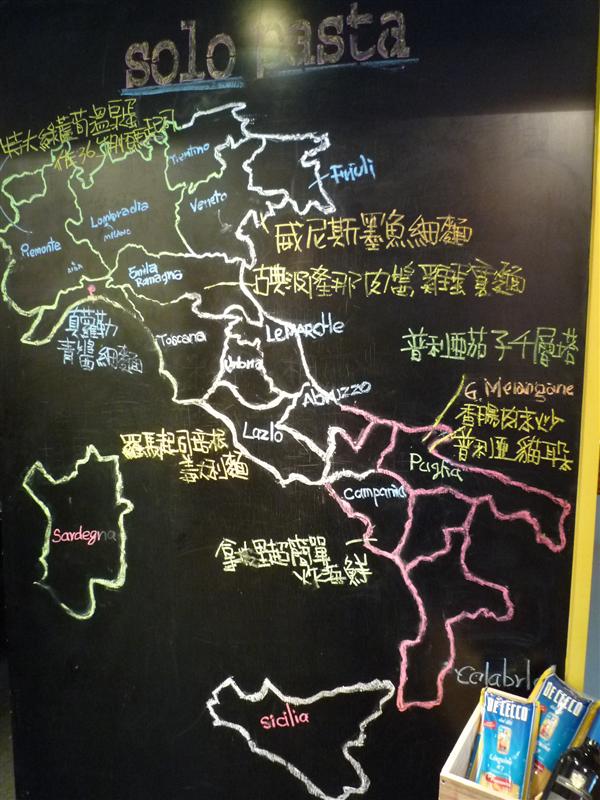 solo pasta
特大綠蘆筍溫早蛋
Trentino
Friuli
Lombradia
MILANO
Veneto
威尼斯墨魚細麵
Piemonte
Emilia
Romagna
古典波隆那肉醬雞蛋寬麵
真羅勒
青醬細麵
Toscana
LEMARCHE
Umbria
普利亞茄子千層塔
Abruzzo
G. Melangane
香腸肉末炒
普利亞貓耳朵
Lazio
羅馬起司培根
義大利麵
Puglia
Campania
Sardegna
拿坡里超簡單
炸海鮮
Calabria
Sicilia
DE CECCO
DE CECCO